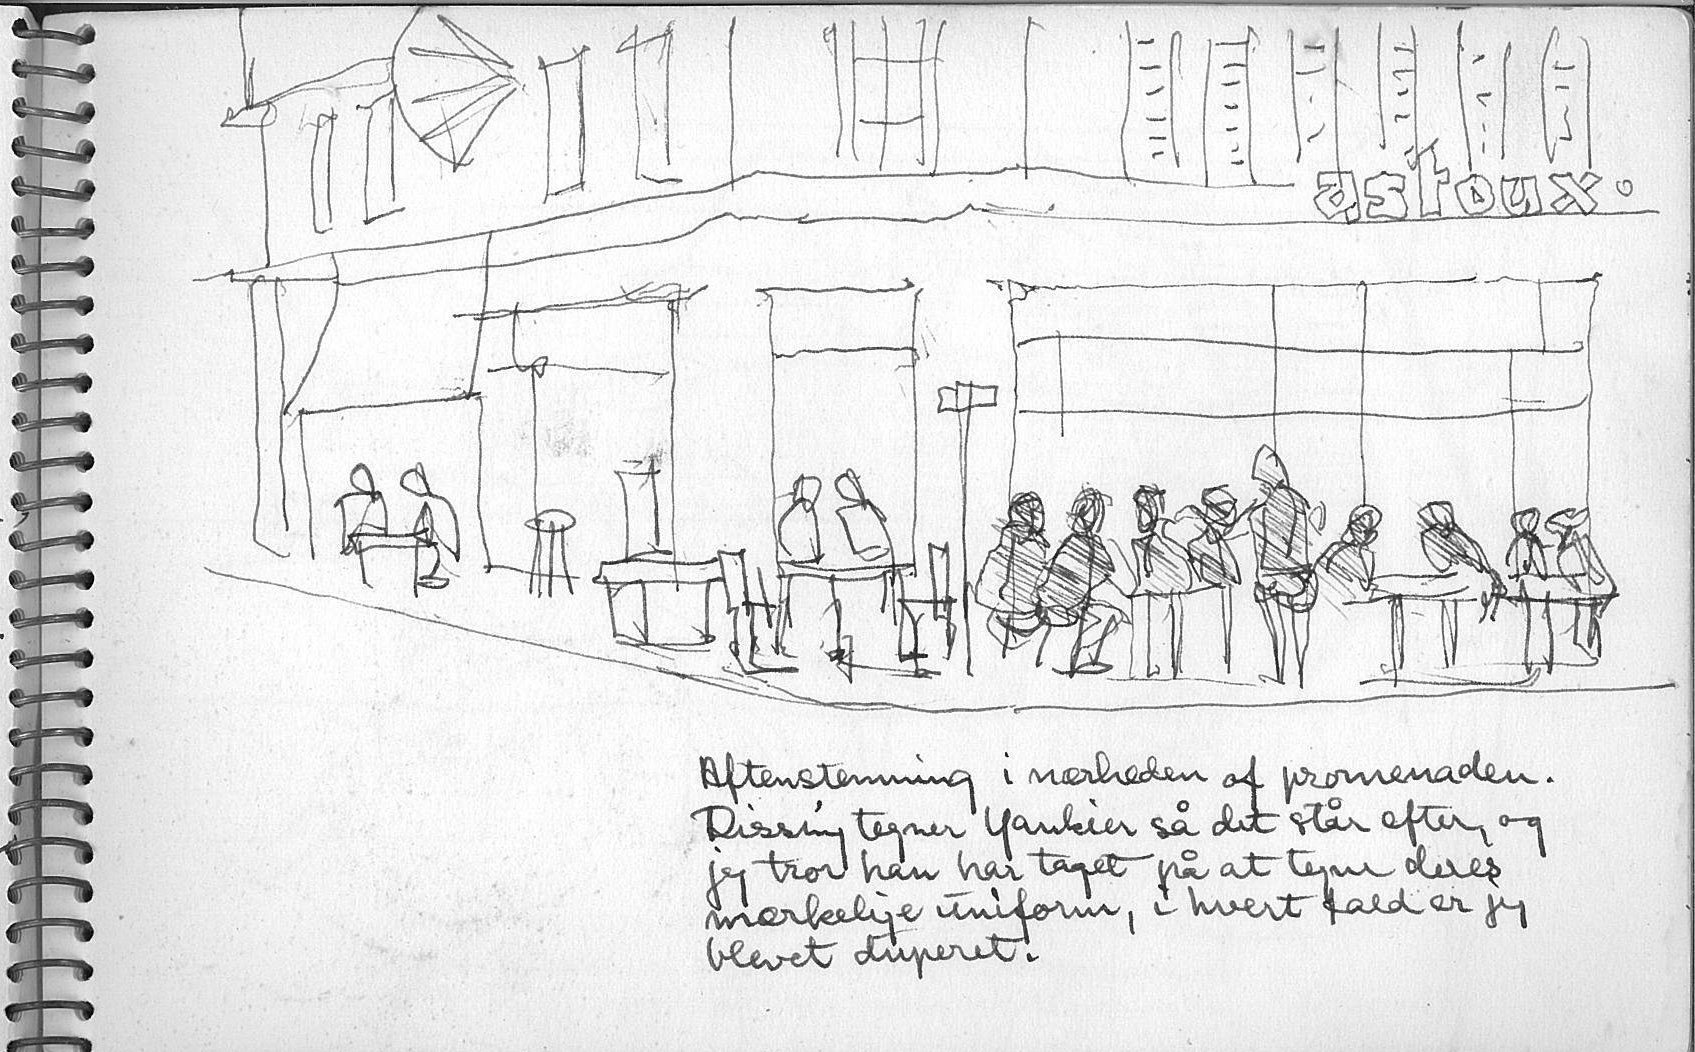 astoux.
Aftenstemning i nærheden af promenaden.
Dissing tegner Yankier så det står efter, og
jeg tror han har taget på at tegne deres
mærkelige uniform, i hvert fald er jeg
blevet duperet.